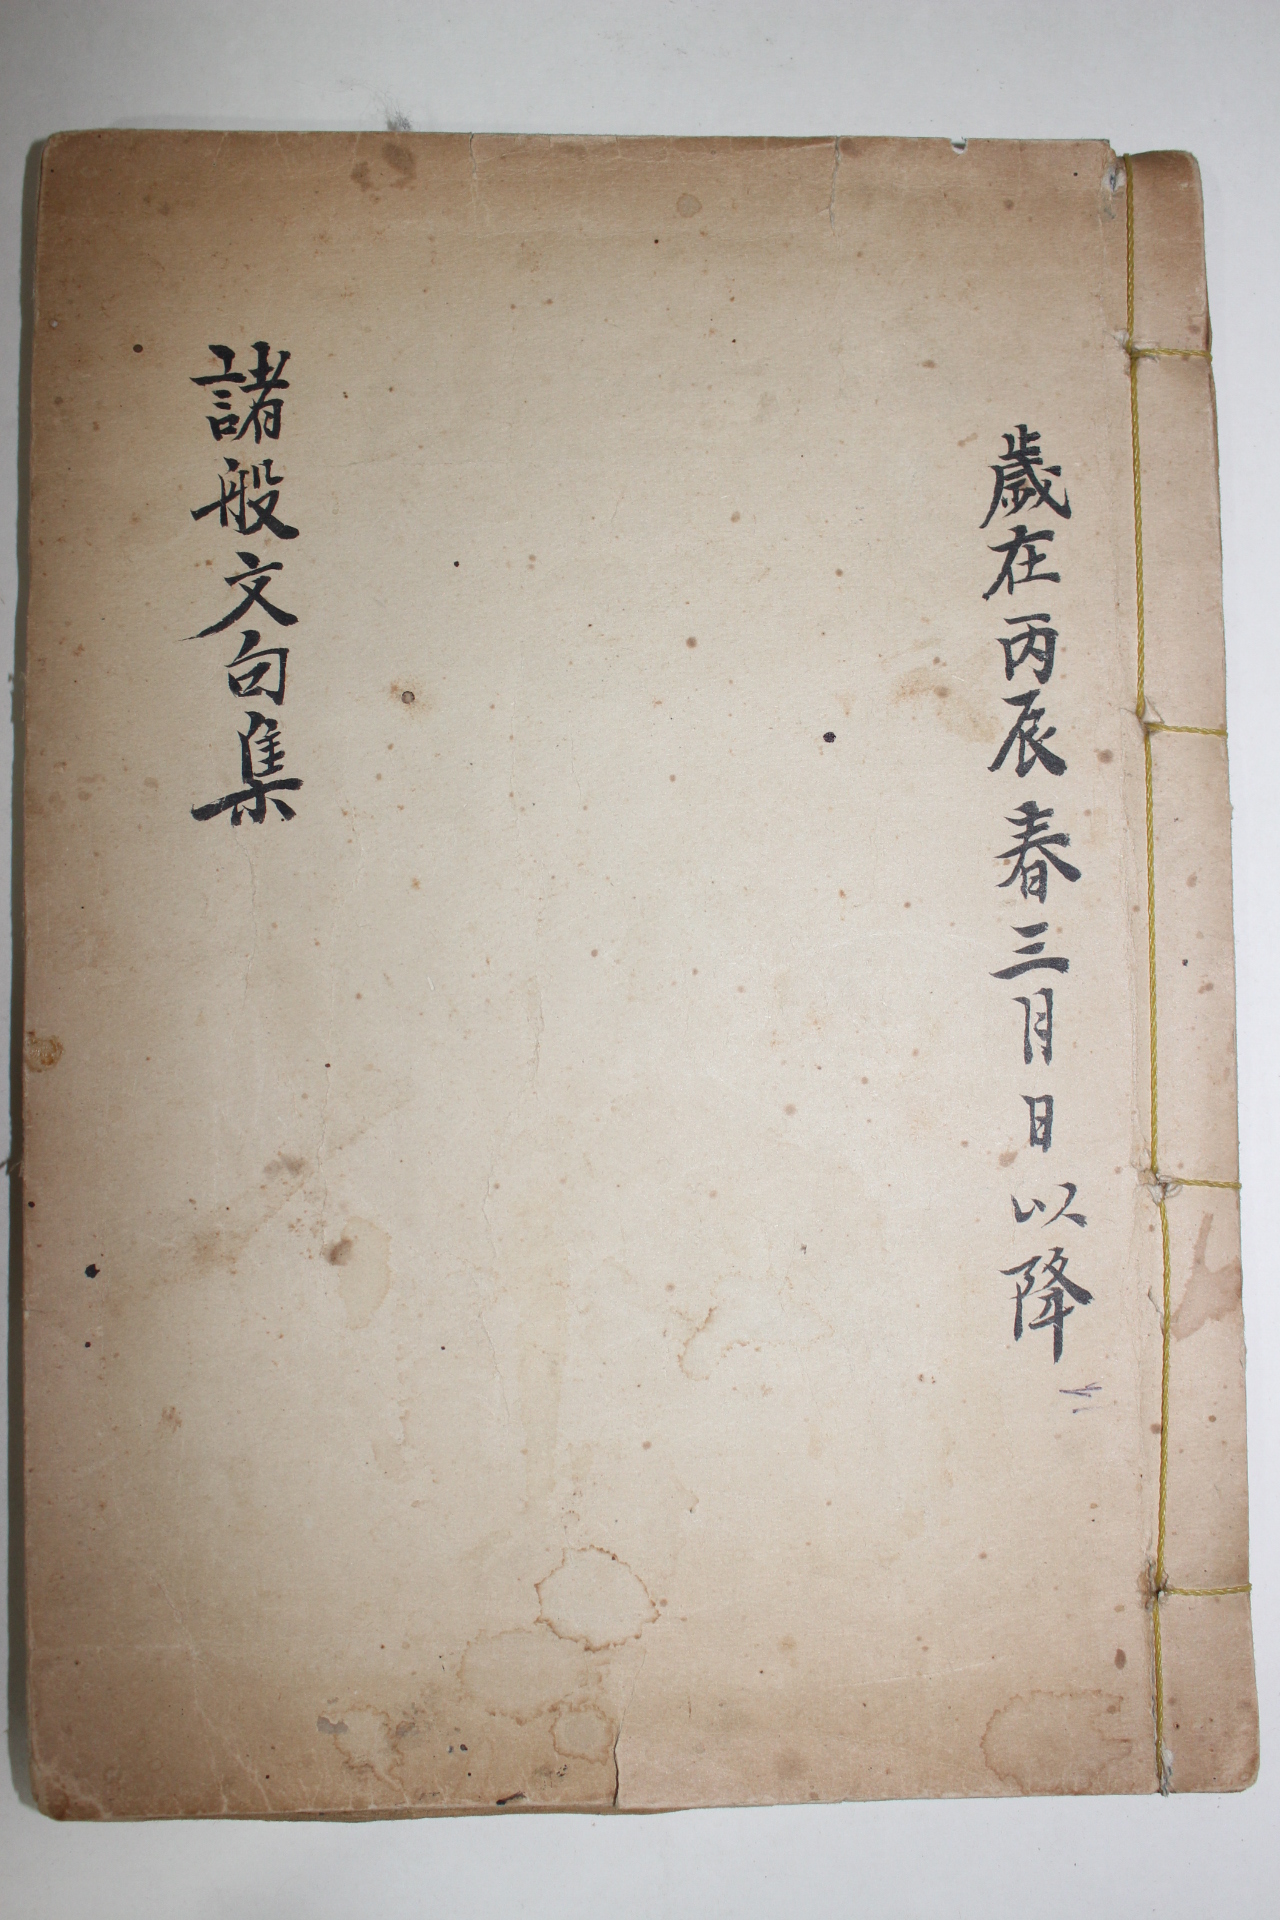 歲在丙辰春三月日以降
諸般文句集